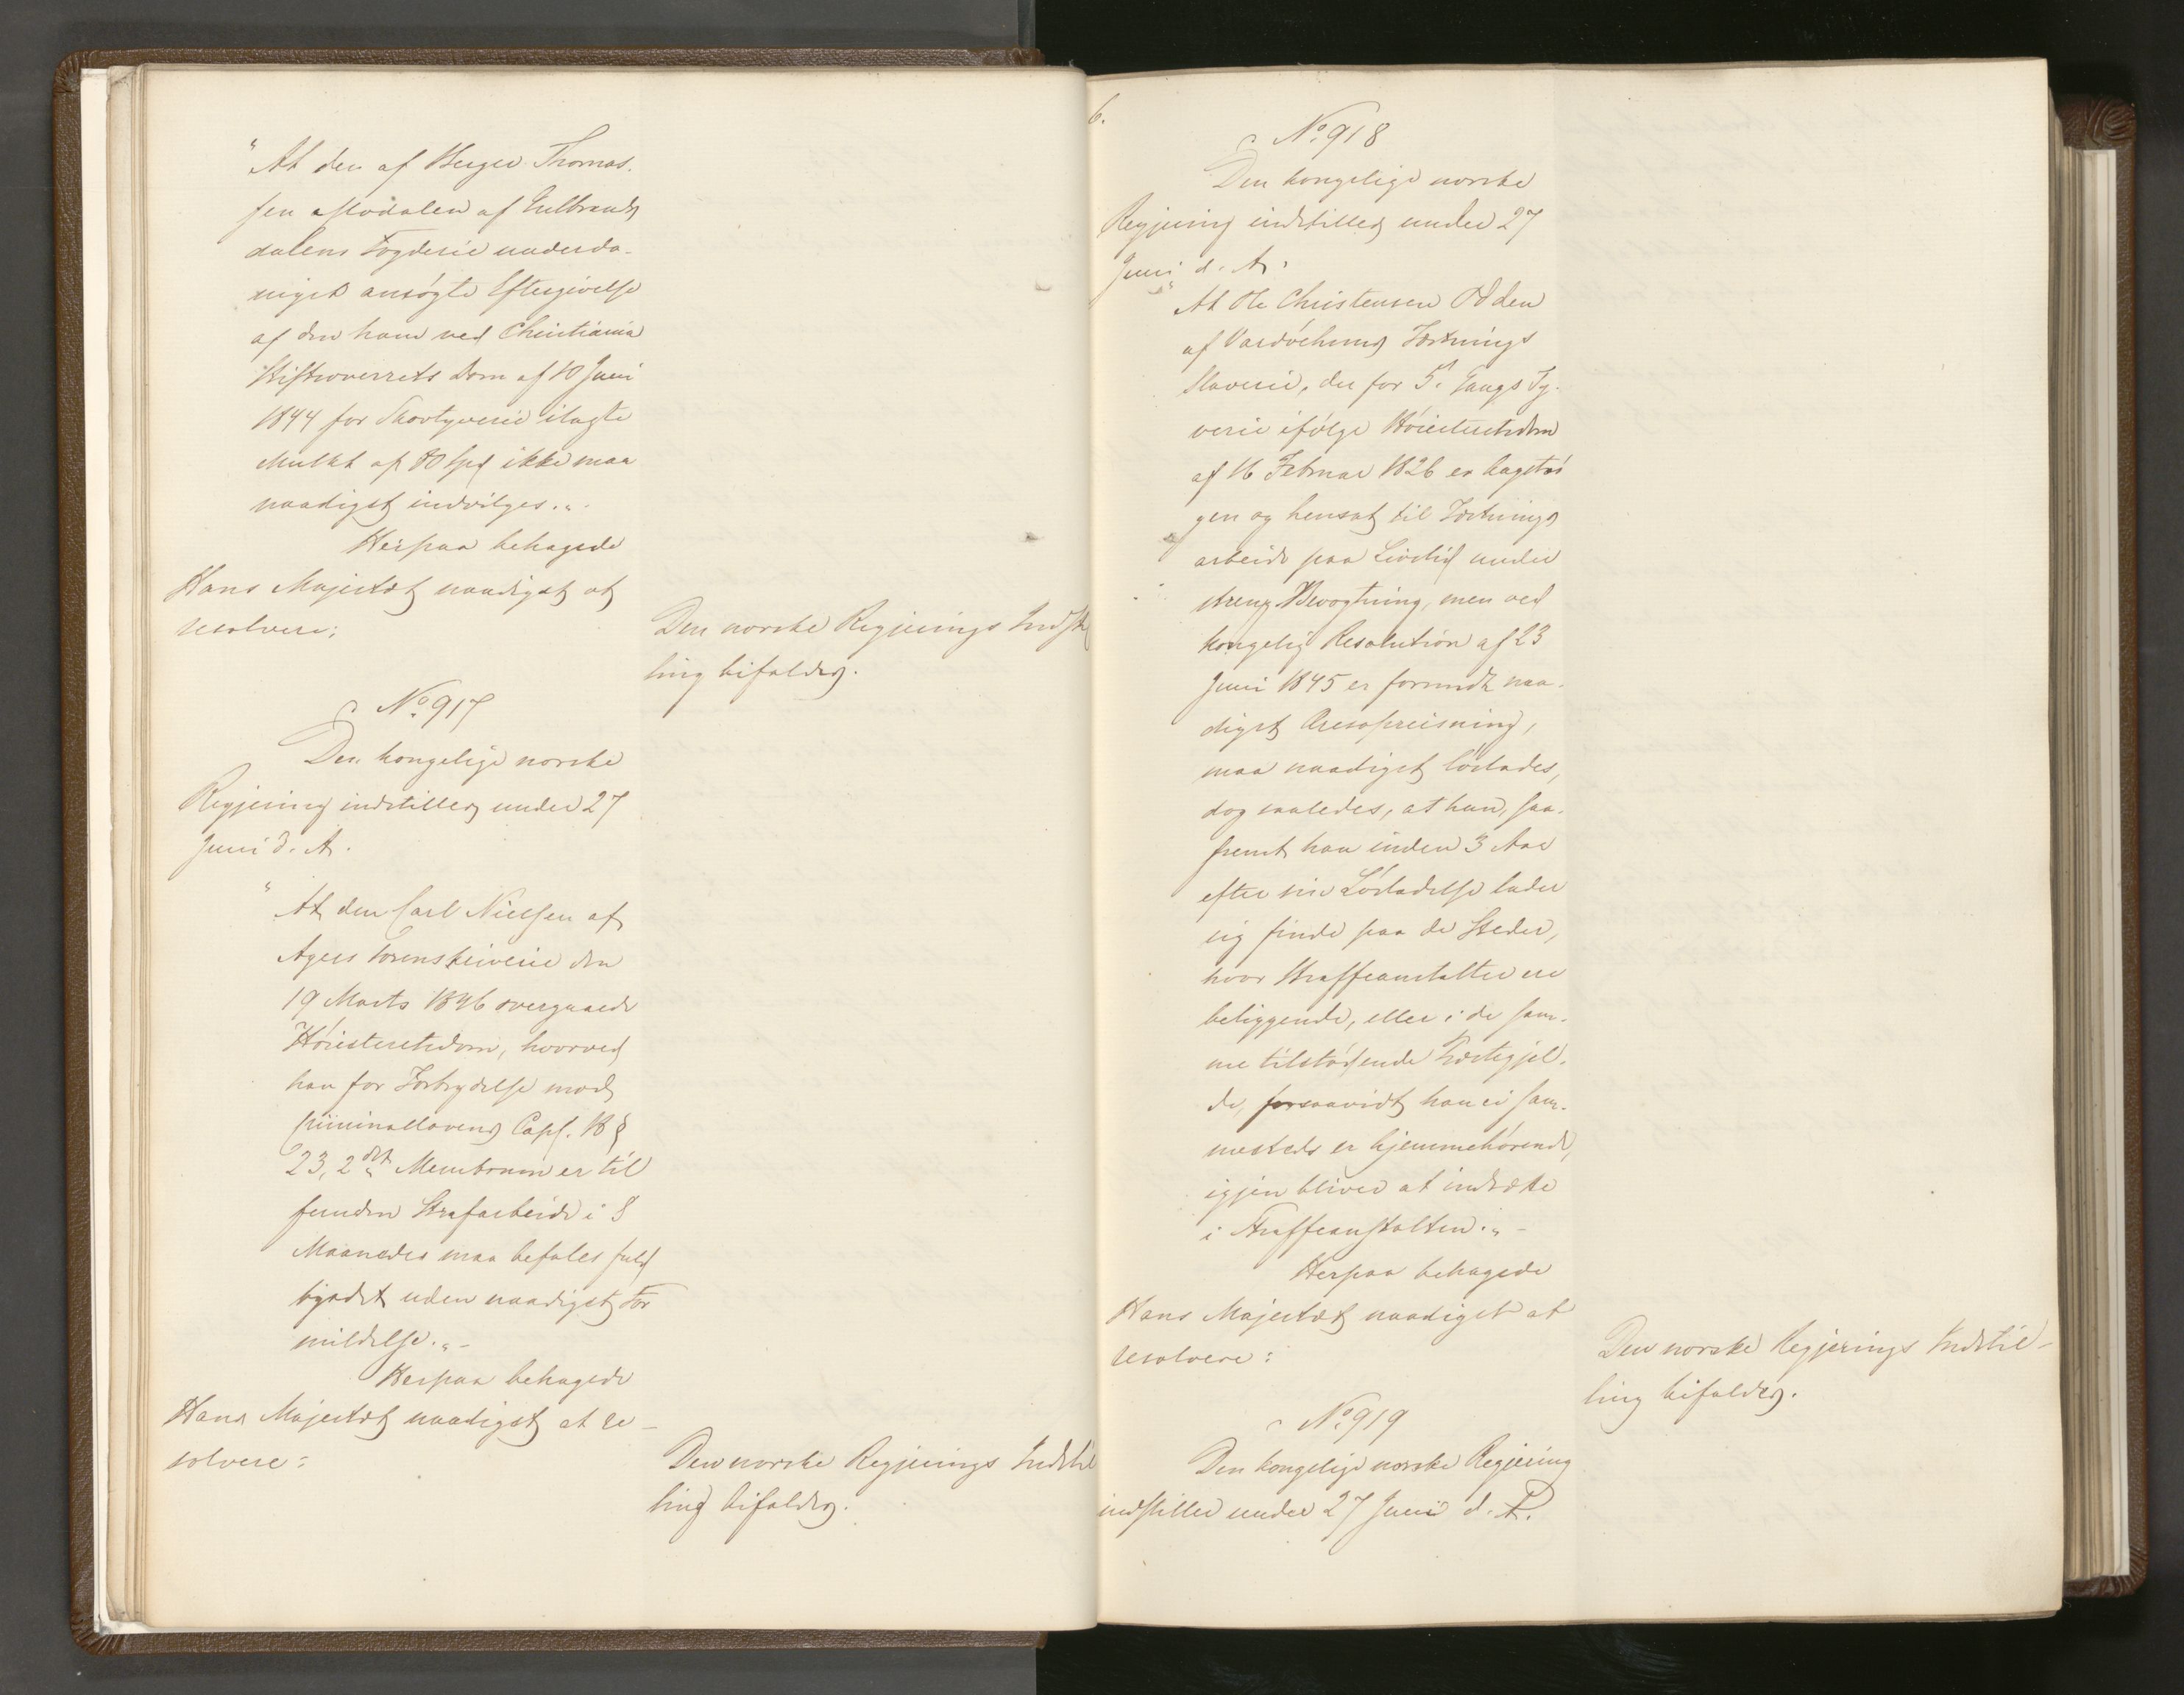 "At den af Berger Thomas-
sen Modalen af Gulbrands
dalens Fogderie underda-
nigst ansøgte Eftergivelse
af den ham ved Christiania
Stiftsoverrets Dom af 10 Juni
1844 for Skovtyverie ilagte
Mulkt af 10 Spd ikke maa
naadigst indvilges."
Herpaa behagede
Hans Majestæt naadigst at
resolvere:
Den norske Regjerings Indstil
ling bifaldes.
No 917
Den kongelige norske
Regjering indstiller under 27
Juni d. A.
"At den Carl Nielsen af
Agers Sorenskriverie den
19 Marts 1846 overgaaede
Høiesteretsdom, hvorved
han for Forbrydelse mod
Criminallovens Cap. 18 §
23, 2det Membrum er til
funden Strafarbeide i 8
Maaneder maa befales fuld
byrdet uden naadigst For
mildelse."-
Herpaa behagede
Hans Majestæt naadigst at re-
solvere:
Den norske Regjerings Indstil
ling bifaldes.
6.
No 918
Den kongelige norske
Regjering indstiller under 27
Juni d. A.
"At Ole Christensen Odden
af Vardøehuus Fæstnings
Slaverie, der for 5te Gangs Ty-
verie ifølge Høiesteretsdom
af 16 Februar 1826 er kagstrø
gen og hensat til Fæstnings
arbeide paa Livstid under
streng Bevogtning, men ved
kongelig Resolution af 23
Juni 1845 er forundt naa-
digst Æresopreisning,
maa naadigst løslades,
dog saaledes, at han, saa-
fremt han inden 3 Aar
efter sin Løsladelse lader
sig finde paa de Steder,
hvor Straffeanstalter ere
beliggende, eller i de sam-
me tilstødende Præstegjel-
de, forsaavidt han ei sam-
mesteds er hjemmehørende,
igjen bliver at indsætte
i Straffeanstalten."-
Herpaa behagede
Hans Majestæt naadigst at
resolvere:
Den norske Regjerings Indstil-
ling bifaldes.
No 919
Den kongelige norske Regjering
indstiller under 27 Juni d. A.